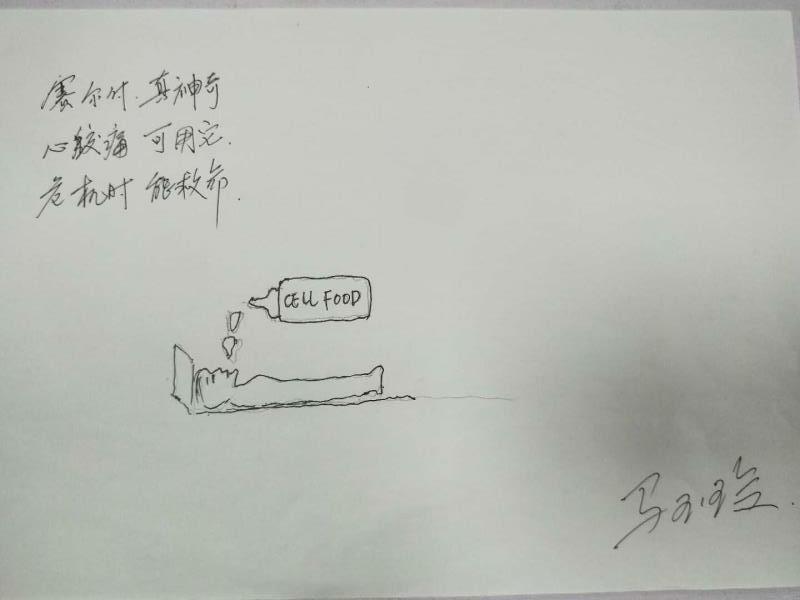 赛尔付.真神奇
心绞痛 可用它.
危机时 能救命.
CELL FOOD